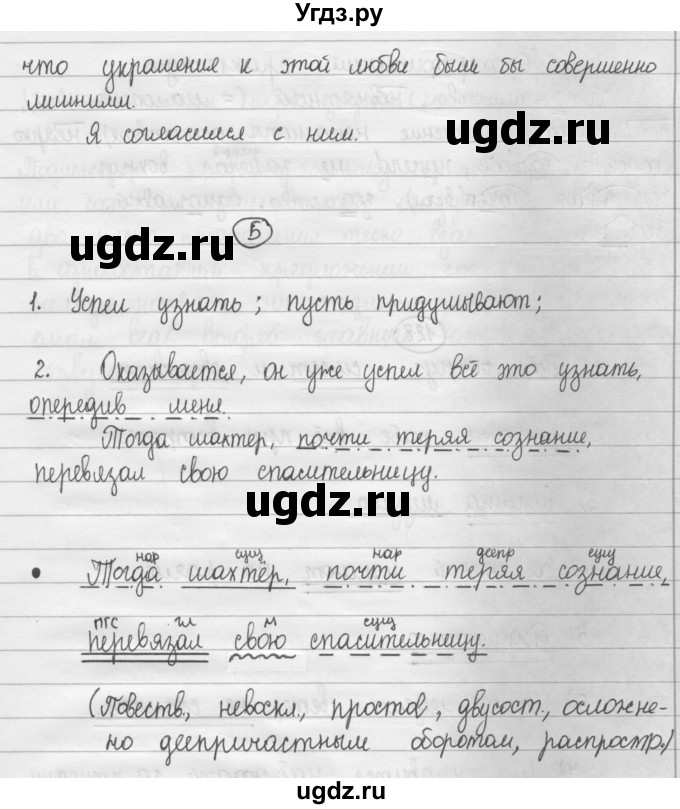 Угдз.ру
что украшения к этой любви были бы совершенно
лишними.
Я согласился с ним.
ugdz.ru
ugdz.ru
Б
1. Успел узнать; пусть придумывают;
2. Оказывается, он уже успел всё это узнать,
опередив меня.
Тогда шахтер, почти теряя сознание,
перевязал свою спасительницу.
ugdz.ru
нар сущ нар деепр сущ
• Тогда шахтёр, почти теряя сознание,
ПГС гл м сущ
перевязал свою спасительницу.
(Повеств., невоскл., простое, двусост., осложне-
но деепричастным оборотом, распростр.)
ugdz.ru
ugdz.ru